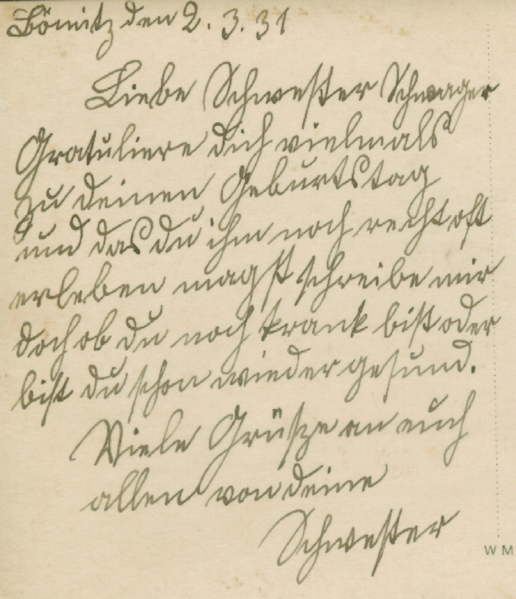 Bömitz den 2. 3. 31
Liebe Schwester Schwager
Gratuliere dich vielmals
zu deinen Geburtstag
und das du ihm noch recht oft
erleben magst schreibe mir
doch ob du noch krank bist oder
bist du schon wieder gesund.
Viele Grüsze an euch
allen von deine
Schwester
W M